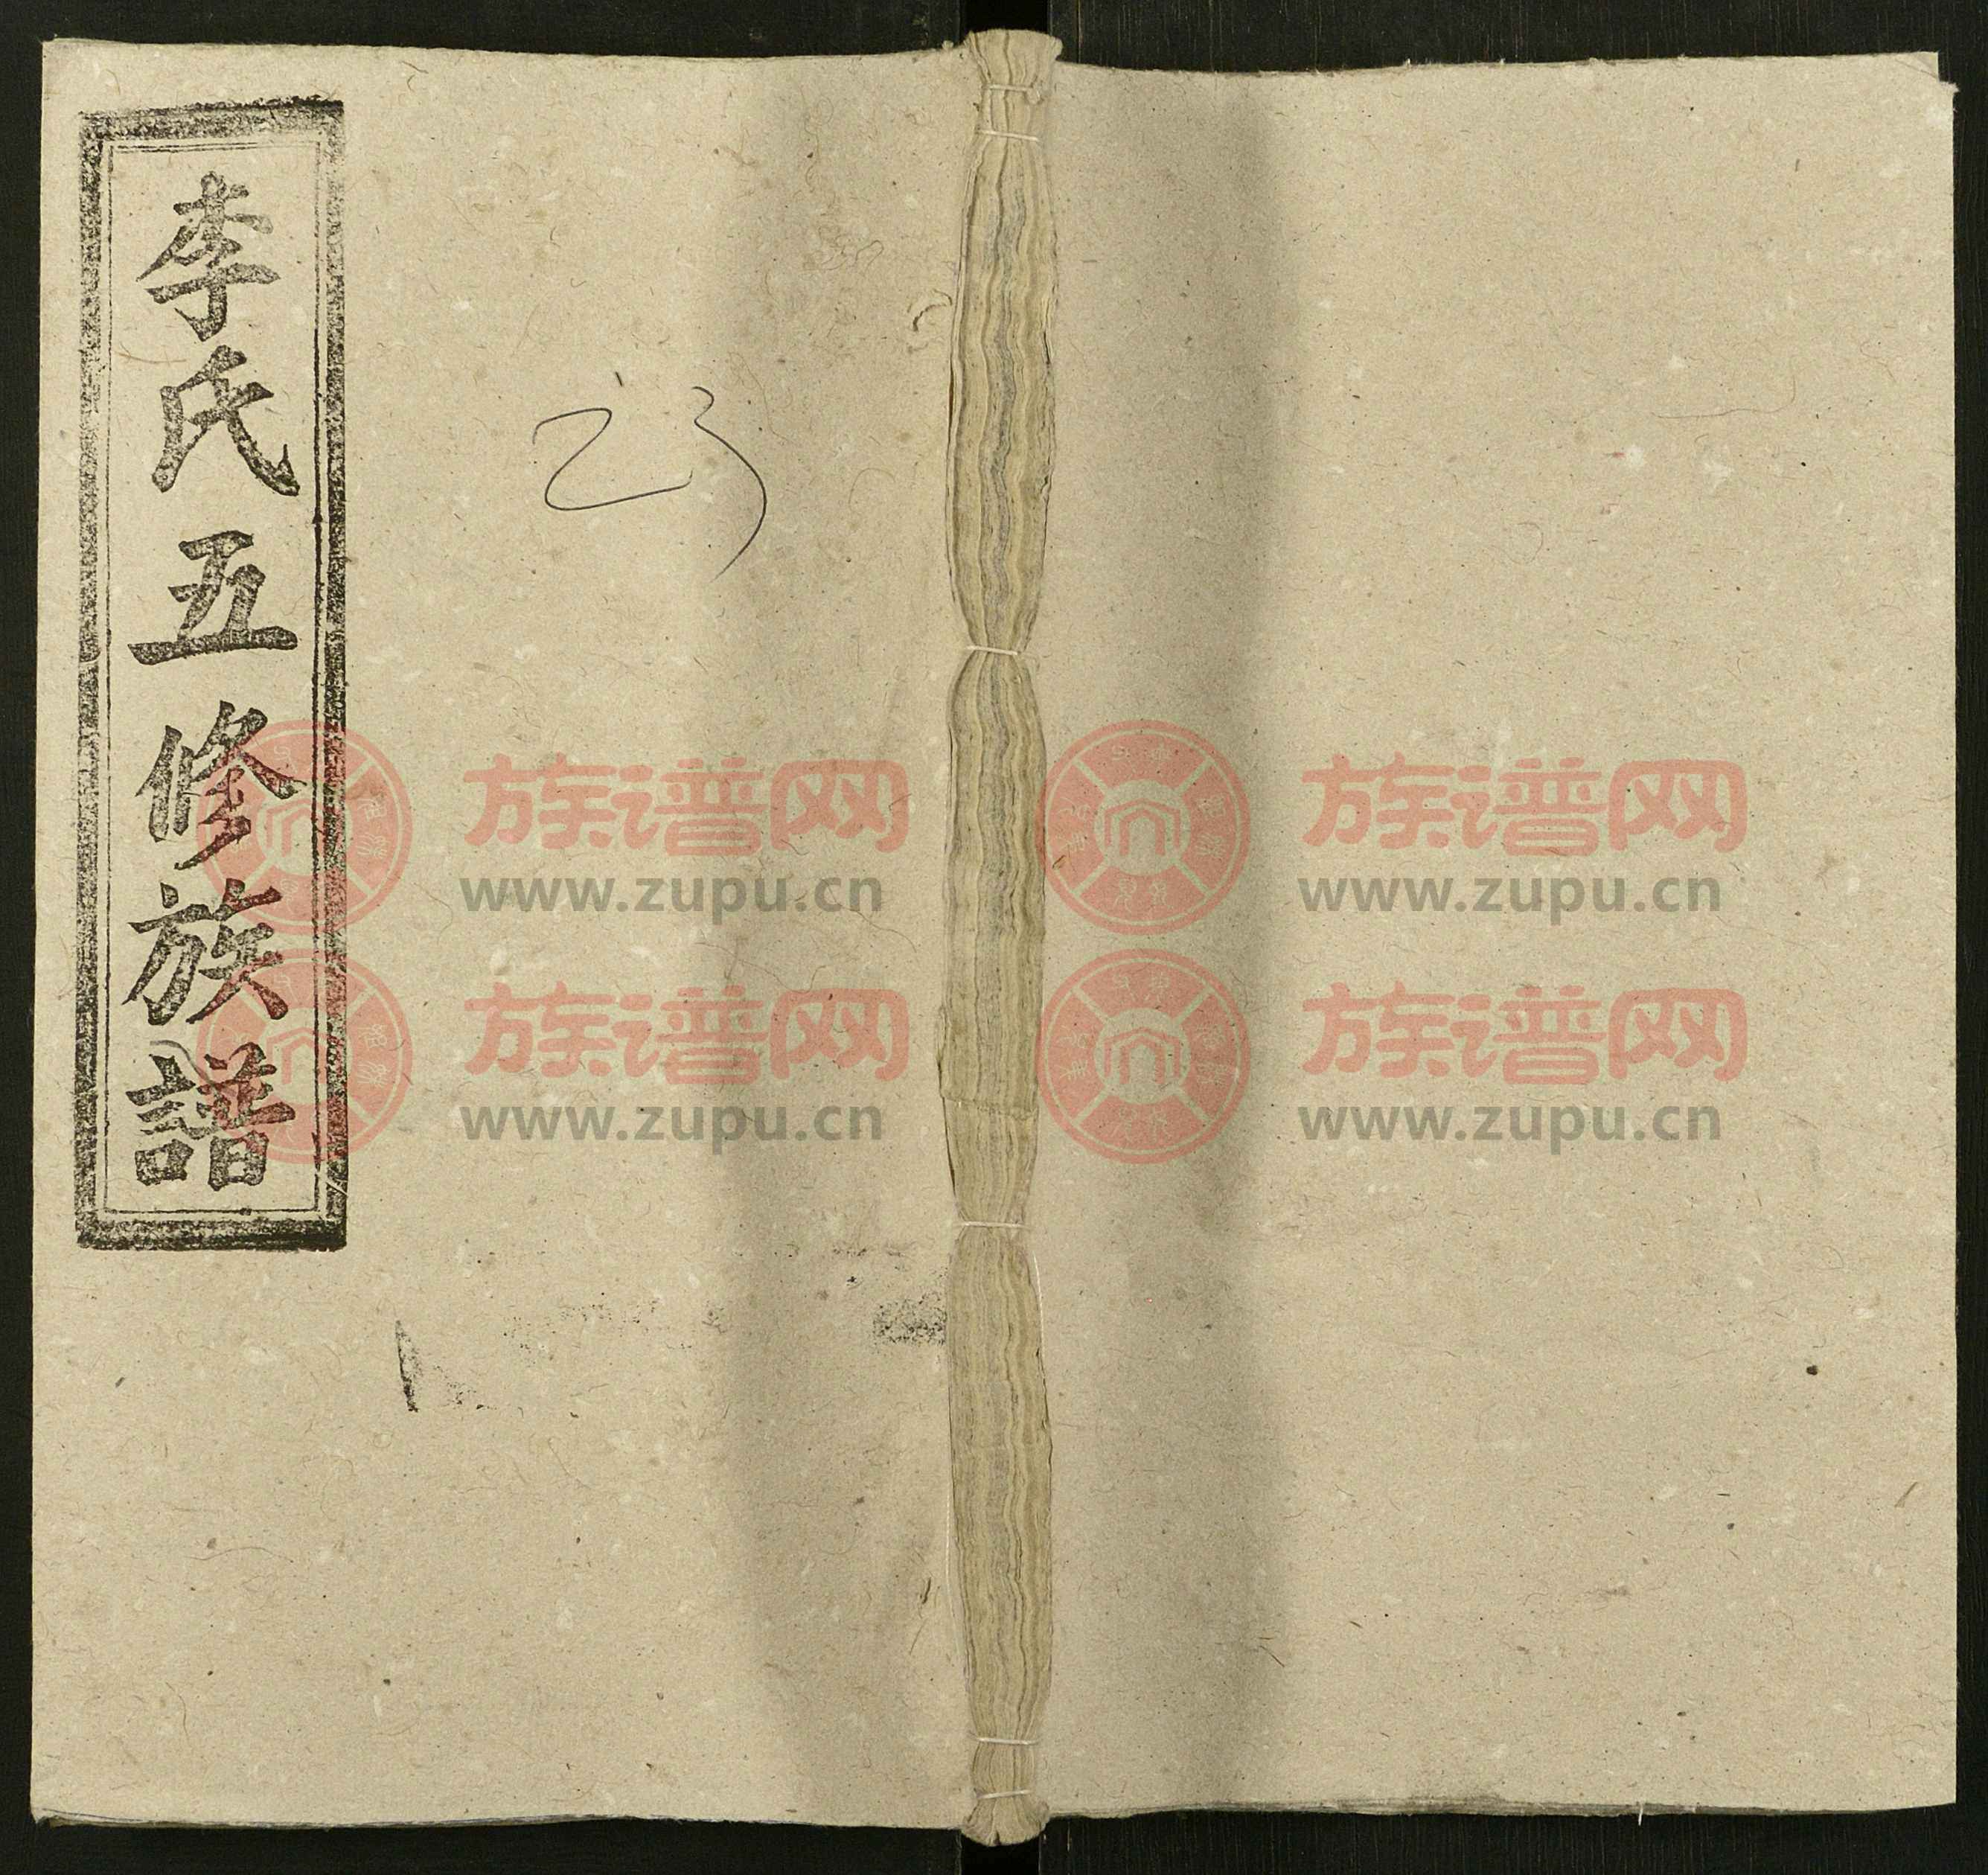 李氏五修族譜
23
族谱网
www.zupu.cn
族谱网
www.zupu.cn
族谱网
www.zupu.cn
族谱网
www.zupu.cn